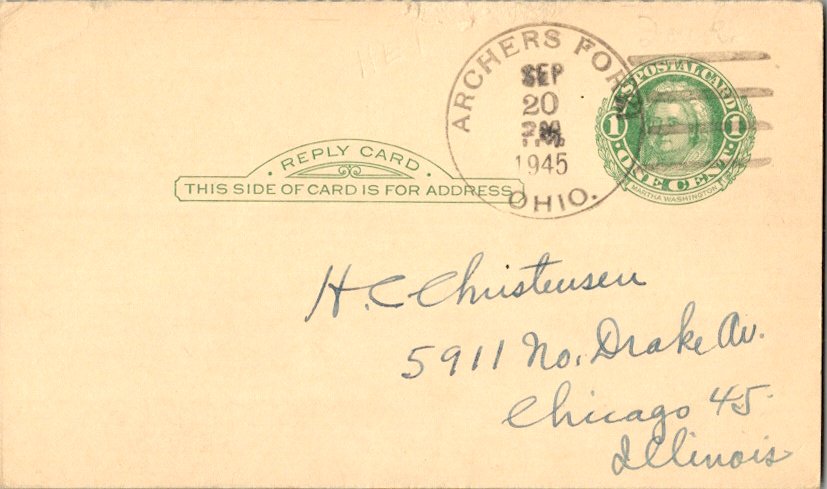 ARCHERS FORK
SEP
20
PM
1945
OHIO.
U.S. POSTAL CARD
1 1
ONE CENT
MARTHA WASHINGTON
· REPLY CARD ·
THIS SIDE OF CARD IS FOR ADDRESS
H. C Christensen
5911 No. Drake Av.
Chicago 45
Illinois